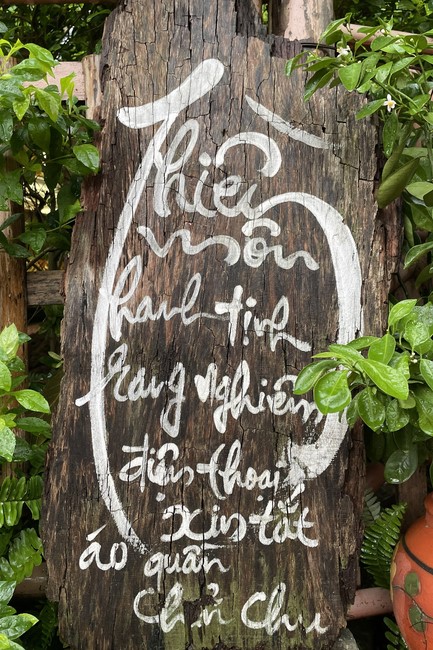 Thiền
môn
thanh tịnh
trang nghiêm
điện thoại
xin tắt
áo quần
chỉn chu